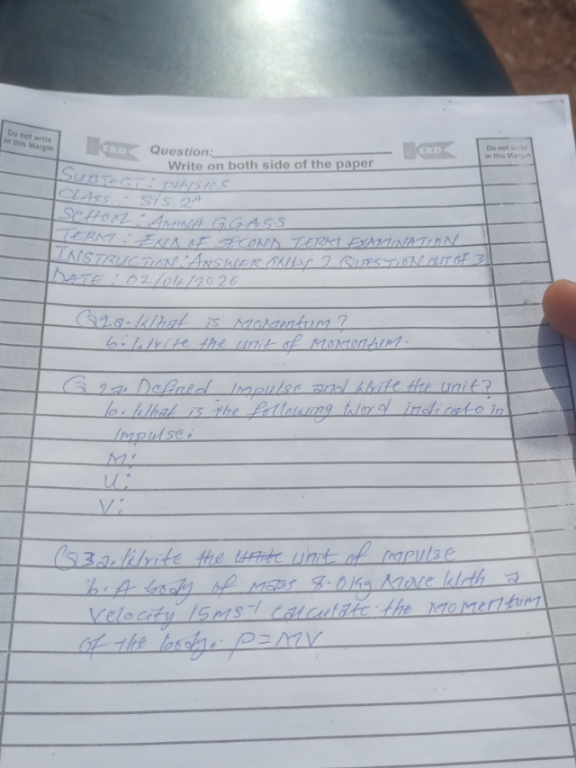 Do not write
in this Margin
ERD
Question:
ERD
Do not write
in this Margin
Write on both side of the paper
SUBJECT: PHYSICS
CLASS: S.S. 2A
SCHOOL: AMINA G.G.A.S.S
TERM: END OF SECOND TERM EXAMINATION
INSTRUCTION: ANSWER ONLY 2 QUESTION OUT OF 3
DATE: 02/04/2026
Q1a. What is momentum?
b. Write the unit of momentum.
Q2a. Defined Impulse and Write the unit?
b. What is the following word indicate in
Impulse:
M:
U:
V:
Q3a. Write the unit of mpulse
b. A body of mass 8.0kg move with a
velocity 15ms-1 calculate the momentum
of the body. P=MV